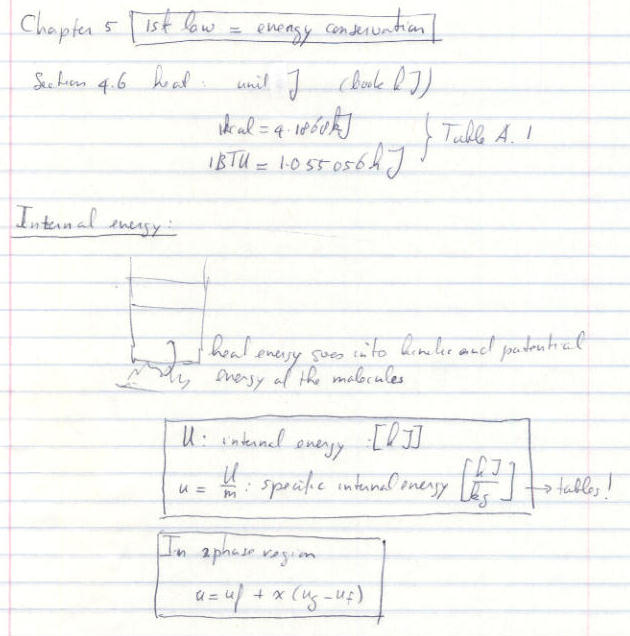 Chapter 5 1st law = energy conservation
Section 4.6 heat: unit J (book kJ)
1kcal = 4.1868kJ
1BTU = 1.055056kJ } Table A.1
Internal energy:
heat energy goes into kinetic and potential
energy of the molecules
U: internal energy :[kJ]
u = U/m : specific internal energy [kJ/kg] → tables!
In 2phase region
u = uf + x (ug - uf)